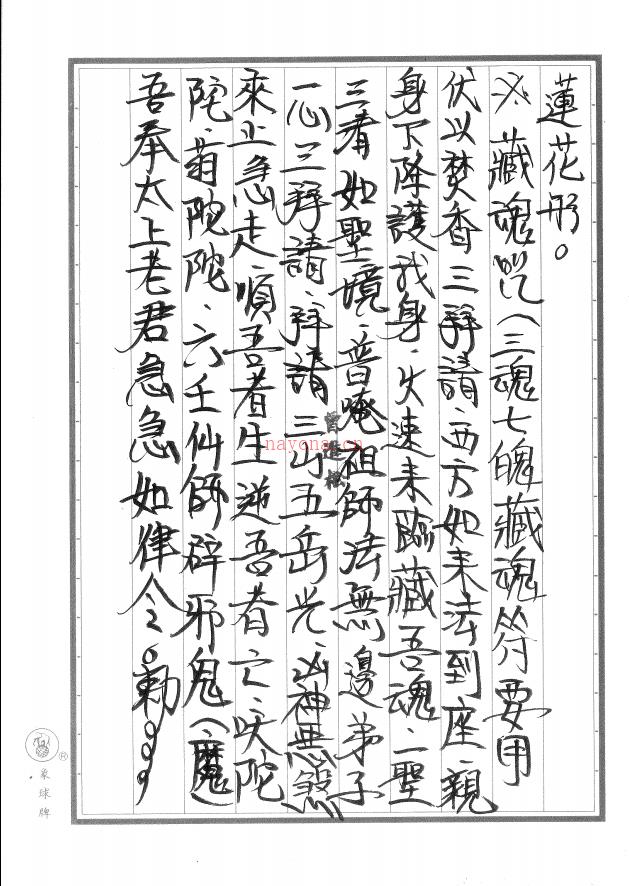 蓮花形。
※藏魂咒(三魂七魄藏魂符要用
伏以焚香三拜請、西方如来法到座、親
身下降護我身、火速来臨藏吾魂、一聖
三看如聖境、普唵祖師法無邊弟子
一心三拜請、拜請三山五岳光、凶神惡煞
來止急走、順吾者生逆吾者亡、吠陀
陀、翁陀陀、六壬仙師辟邪鬼(魔)
吾奉太上老君急急如律令。勅。。。
曾進權
nayona.cn
象球牌